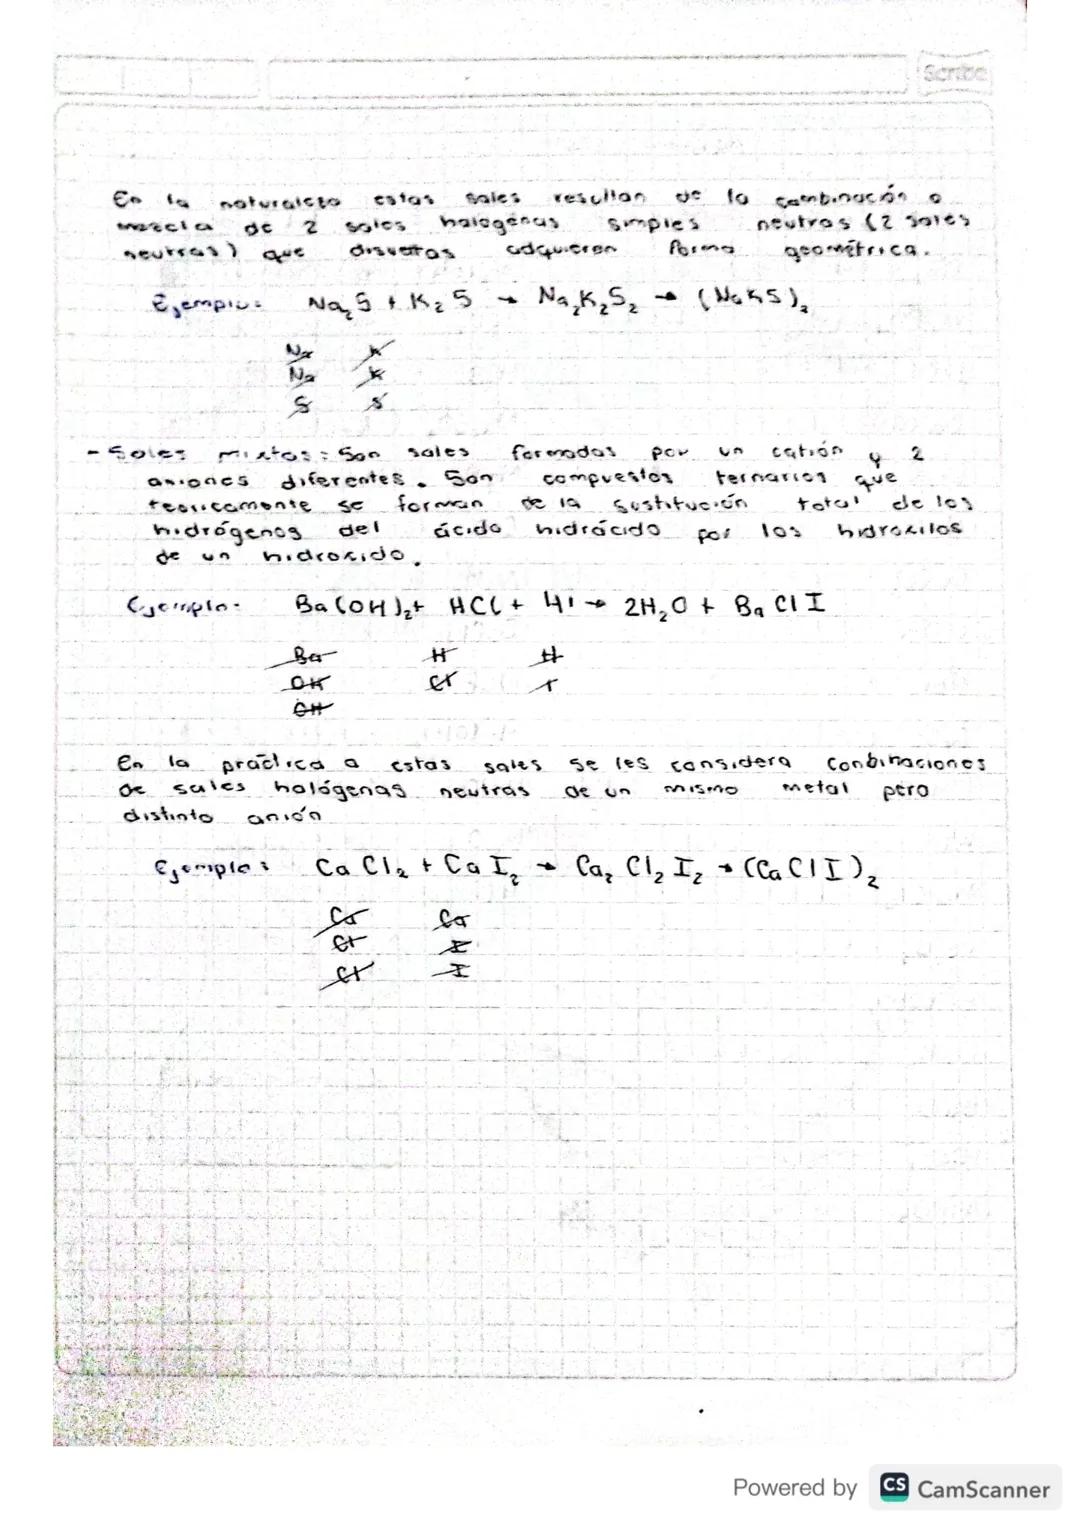 Scribe
En la naturaleza estas sales resultan de la combinación o
mezcla de 2 sales halógenas simples neutras (2 sales
neutras) que disueltas adquieren forma geométrica.
Ejemplo: Na₂S + K₂S → Na₂K₂S₂ → (NaKS)₂
Na K
Na K
S S
- Sales mixtas: Son sales formadas por un catión y 2
aniones diferentes. Son compuestos ternarios que
teoricamente se forman de la sustitución total de los
hidrógenos del ácido hidrácido por los hidroxilos
de un hidroxido.
Ejemplo: Ba(OH)₂+ HCl + HI → 2H₂O + BaClI
Ba H H
OH Cl I
OH
En la práctica a estas sales se les considera conbinaciones
de sales halógenas neutras de un mismo metal pero
distinto anión
Ejemplo: CaCl₂ + CaI₂ → Ca₂Cl₂I₂ → (CaClI)₂
Ca Ca
Cl I
Cl I
Powered by CS CamScanner